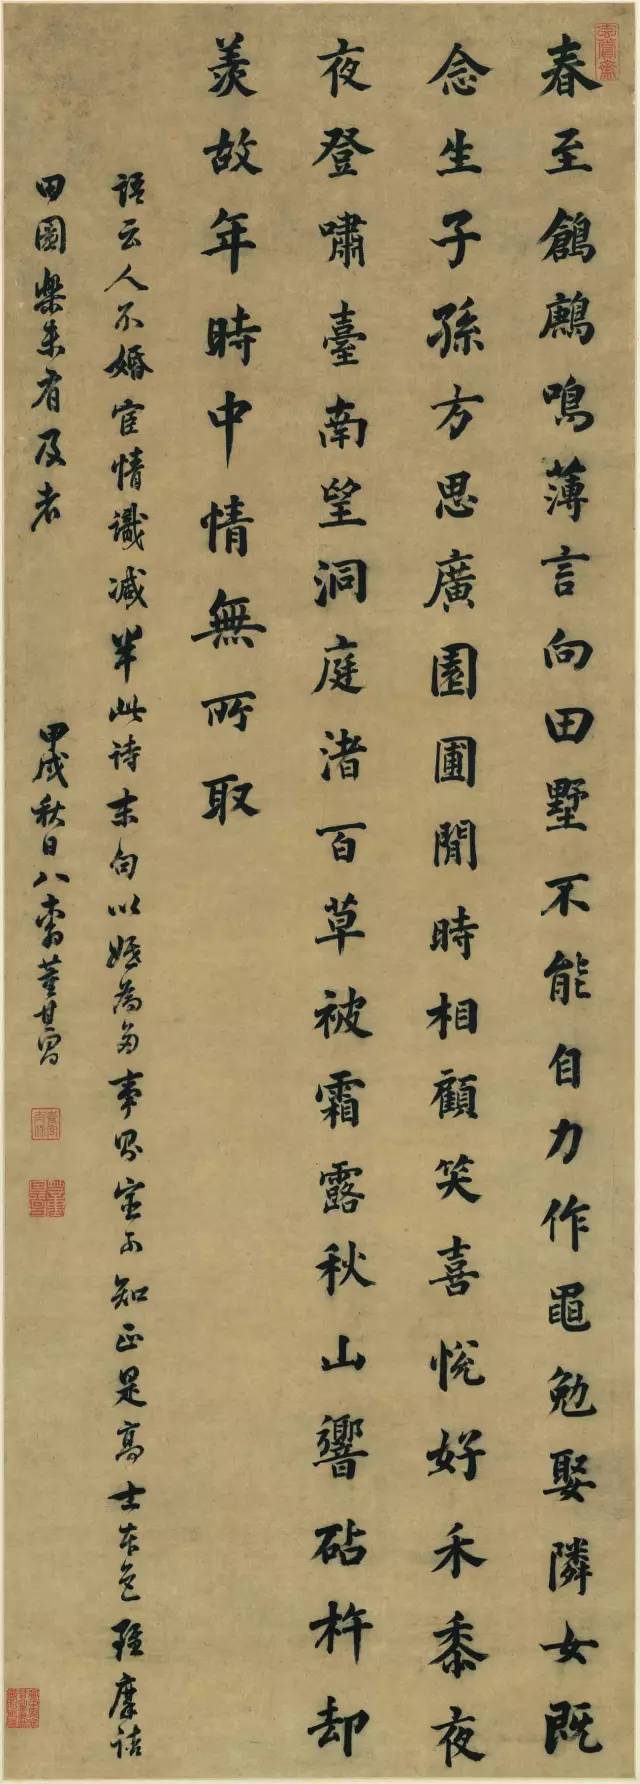 玄賞齋
春至鶬鶊鳴薄言向田墅不能自力作黽勉娶隣女既
念生子孫方思廣園圃閒時相顧笑喜悅好禾黍夜
夜登嘯臺南望洞庭渚百草被霜露秋山響砧杵却
羨故年時中情無所取
語云人不婚宦情識減半此詩末句以婚為多事不知正是高士本色雖摩詰
田園樂未有及者
甲戌秋日八十翁董其昌